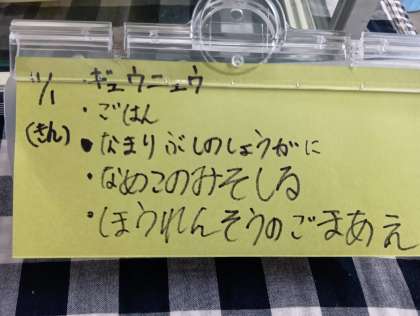 11/1 ・ギュウニュウ
(きん) ・ごはん
・なまりぶしのしょうがに
・なめこのみそしる
・ほうれんそうのごまあえ